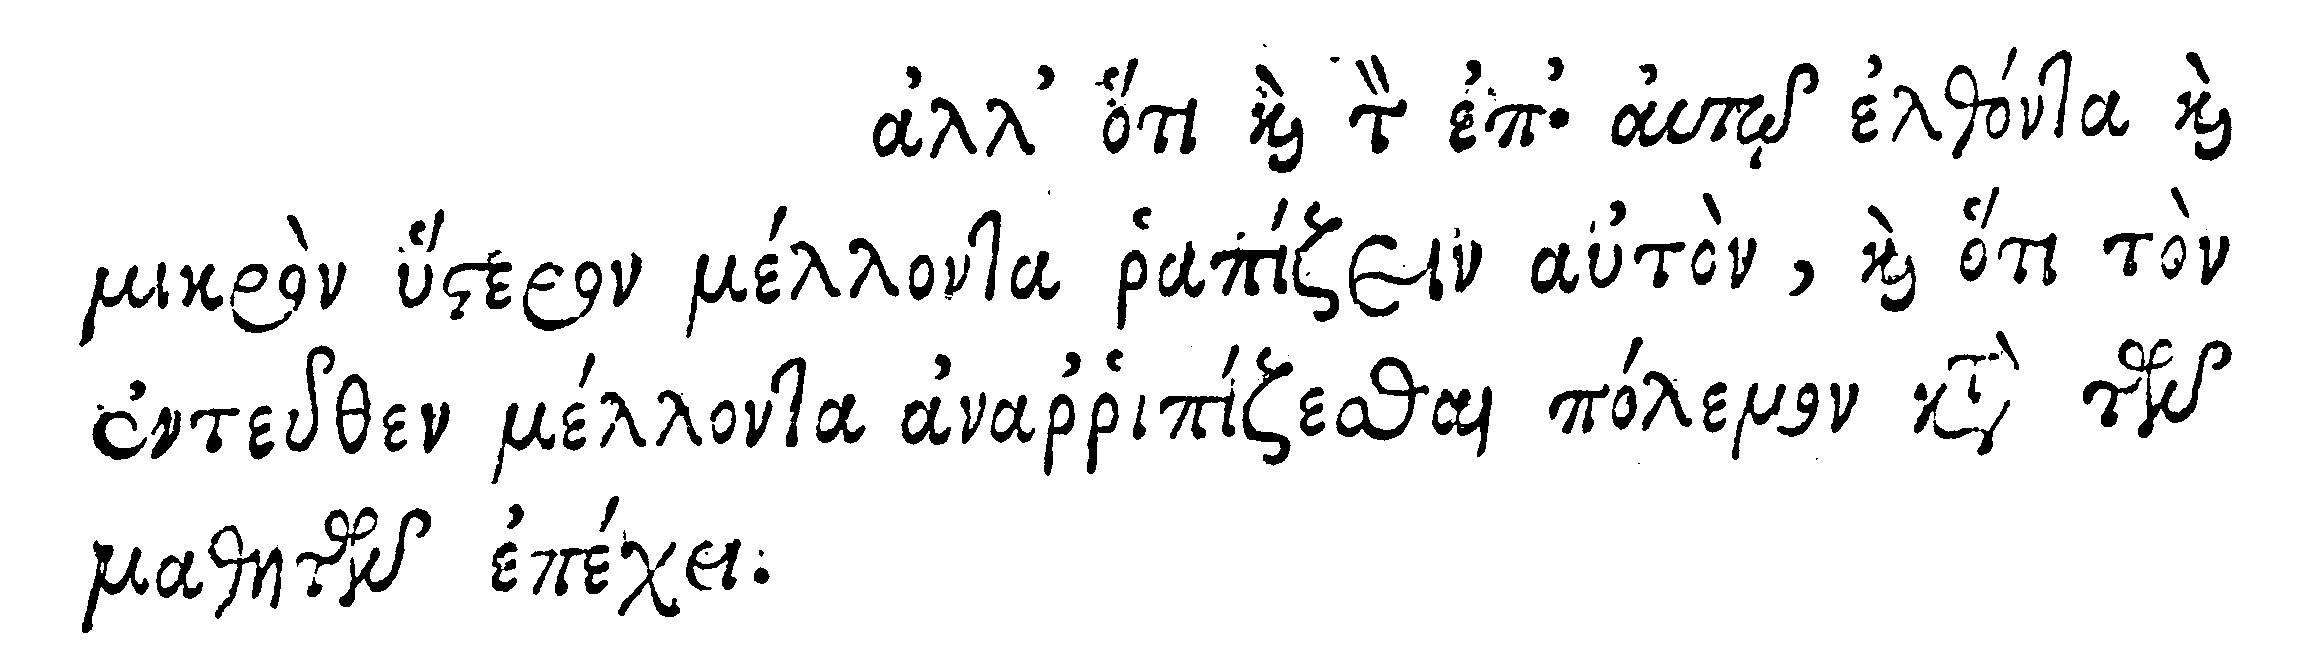 ἀλλ' ὅτι καὶ τὸν ἐπ' αὐτῷ ἐλθόντα καὶ
μικρὸν ὕστερον μέλλοντα ῥαπίζειν αὐτὸν, καὶ ὅτι τὸν
ἐντεῦθεν μέλλοντα ἀναῤῥιπίζεσθαι πόλεμον κατὰ τῶν
μαθητῶν ἐπέχει.